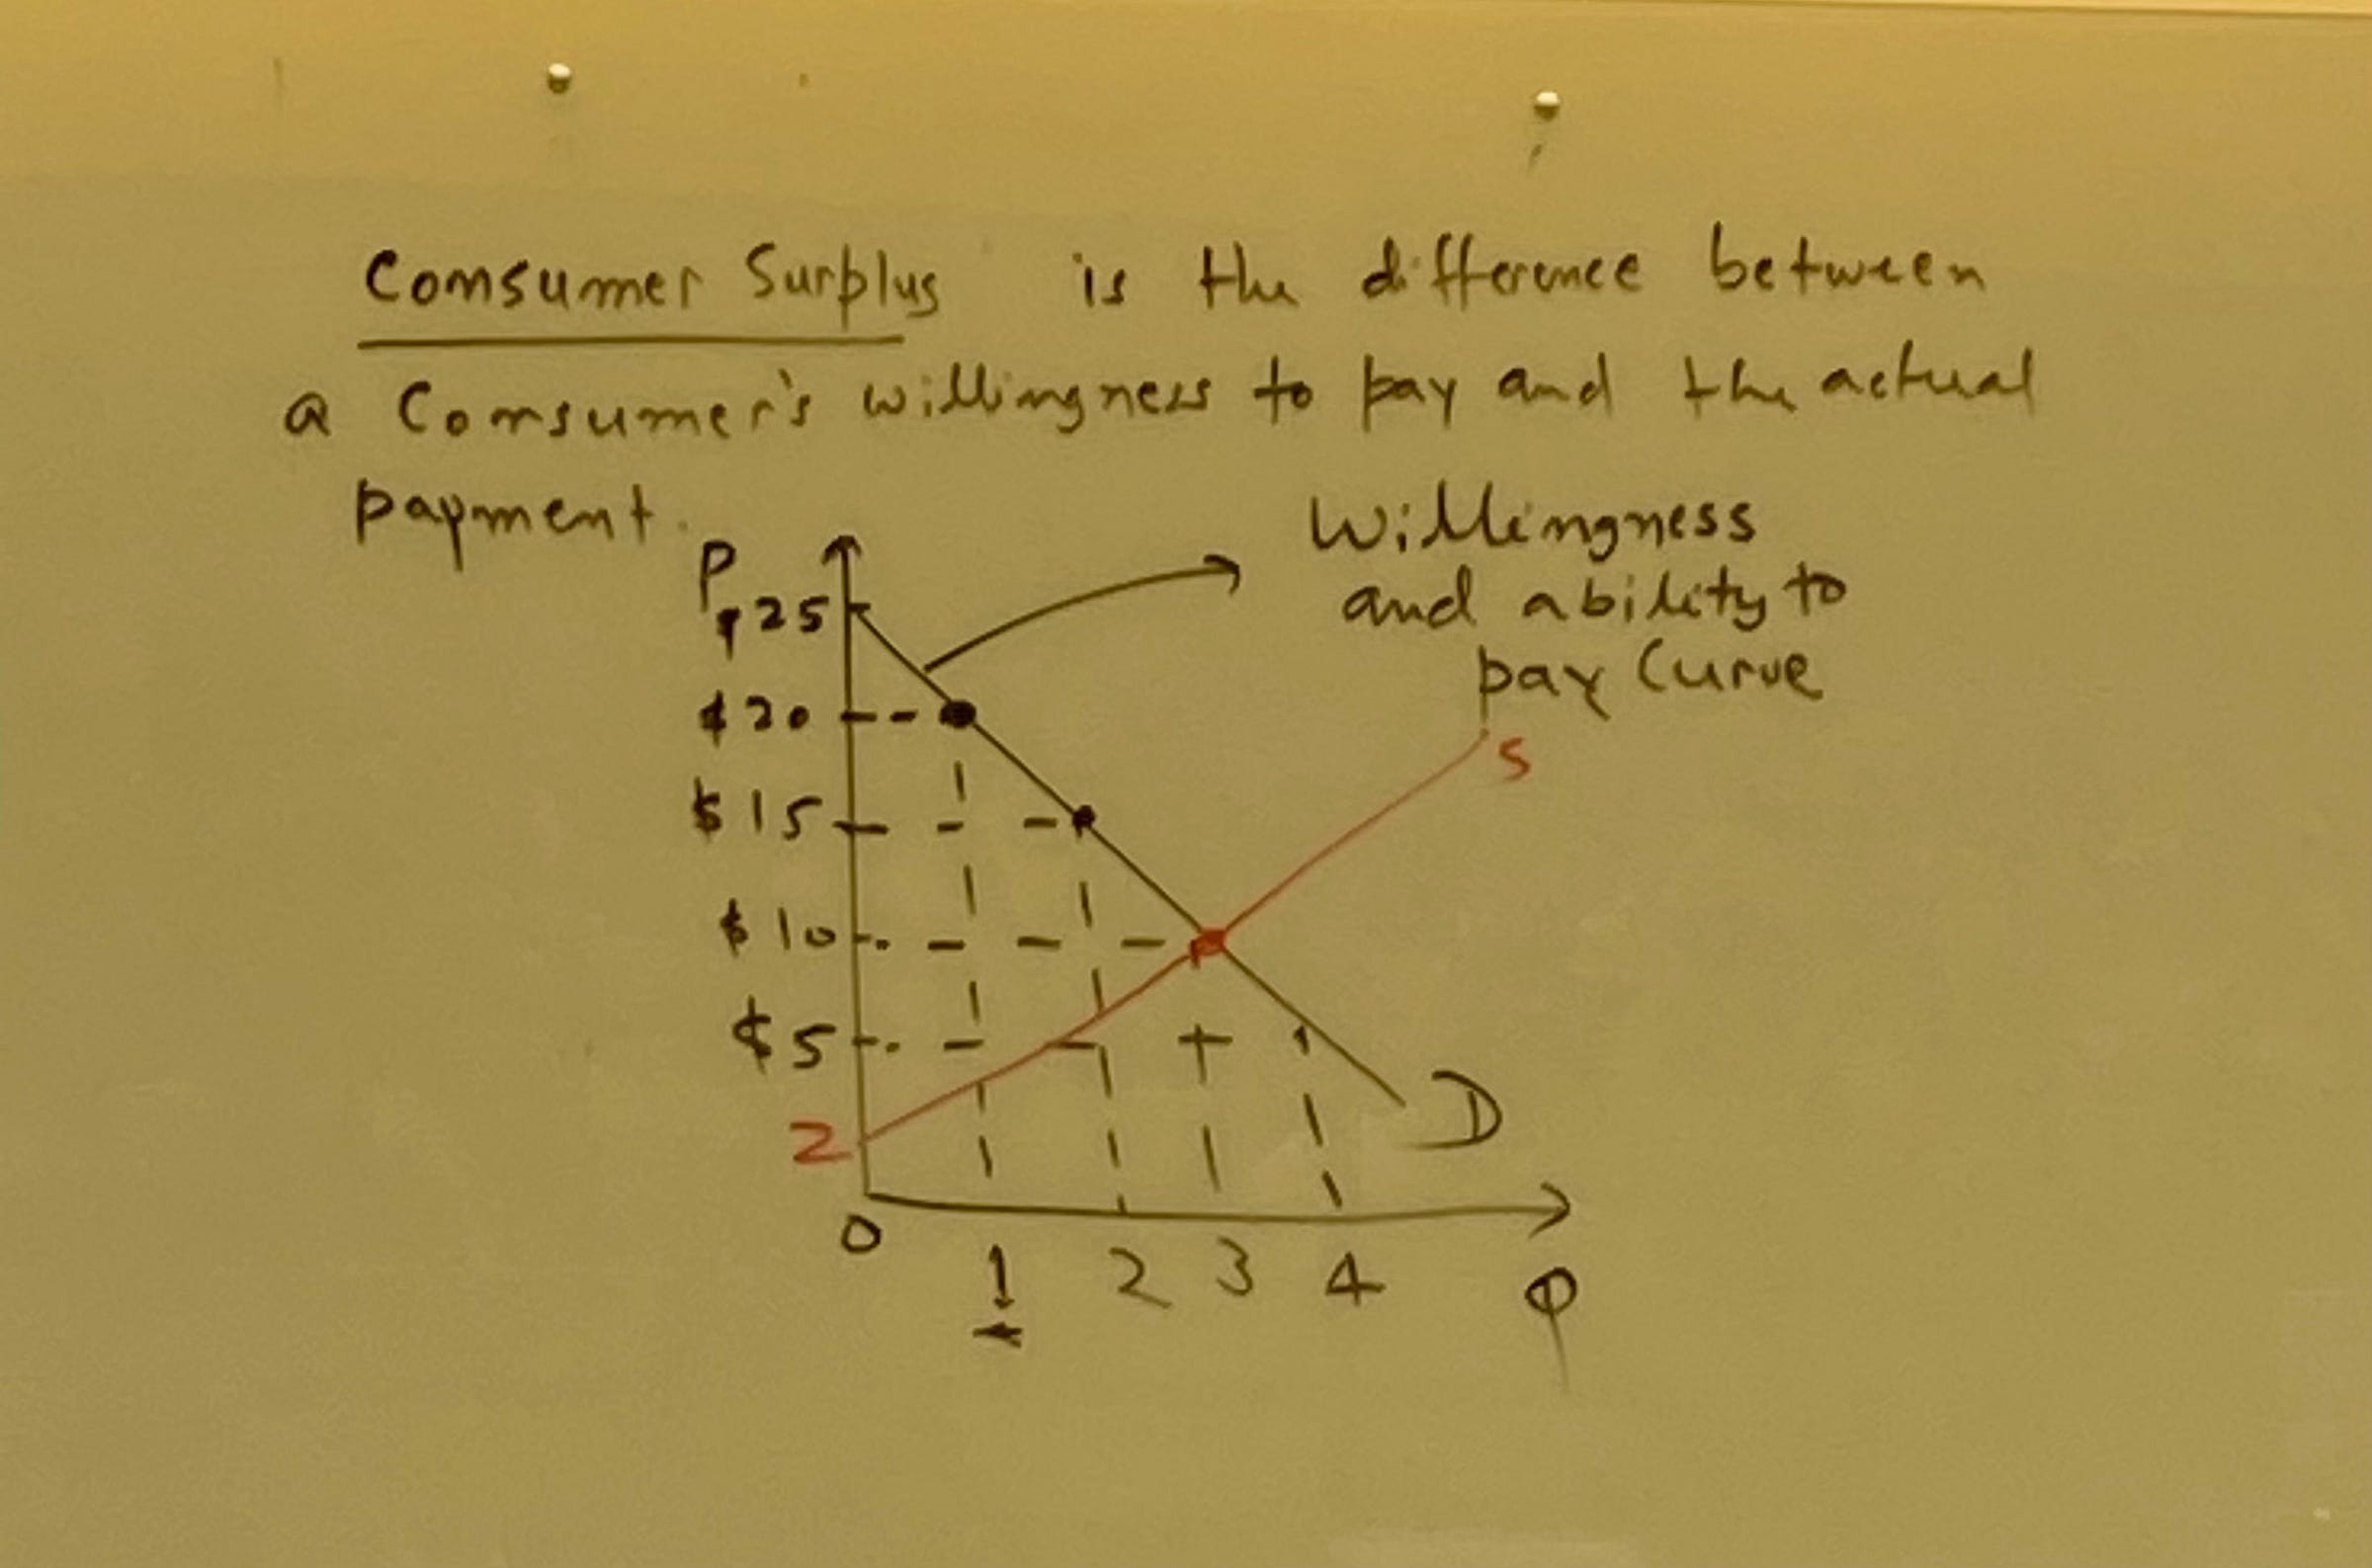 Consumer Surplus is the difference between
a Consumer's willingness to pay and the actual
payment.
Willingness
and ability to
pay Curve
P
$25
$20
$15
$10
$5
2
S
D
0
1 2 3 4 Q